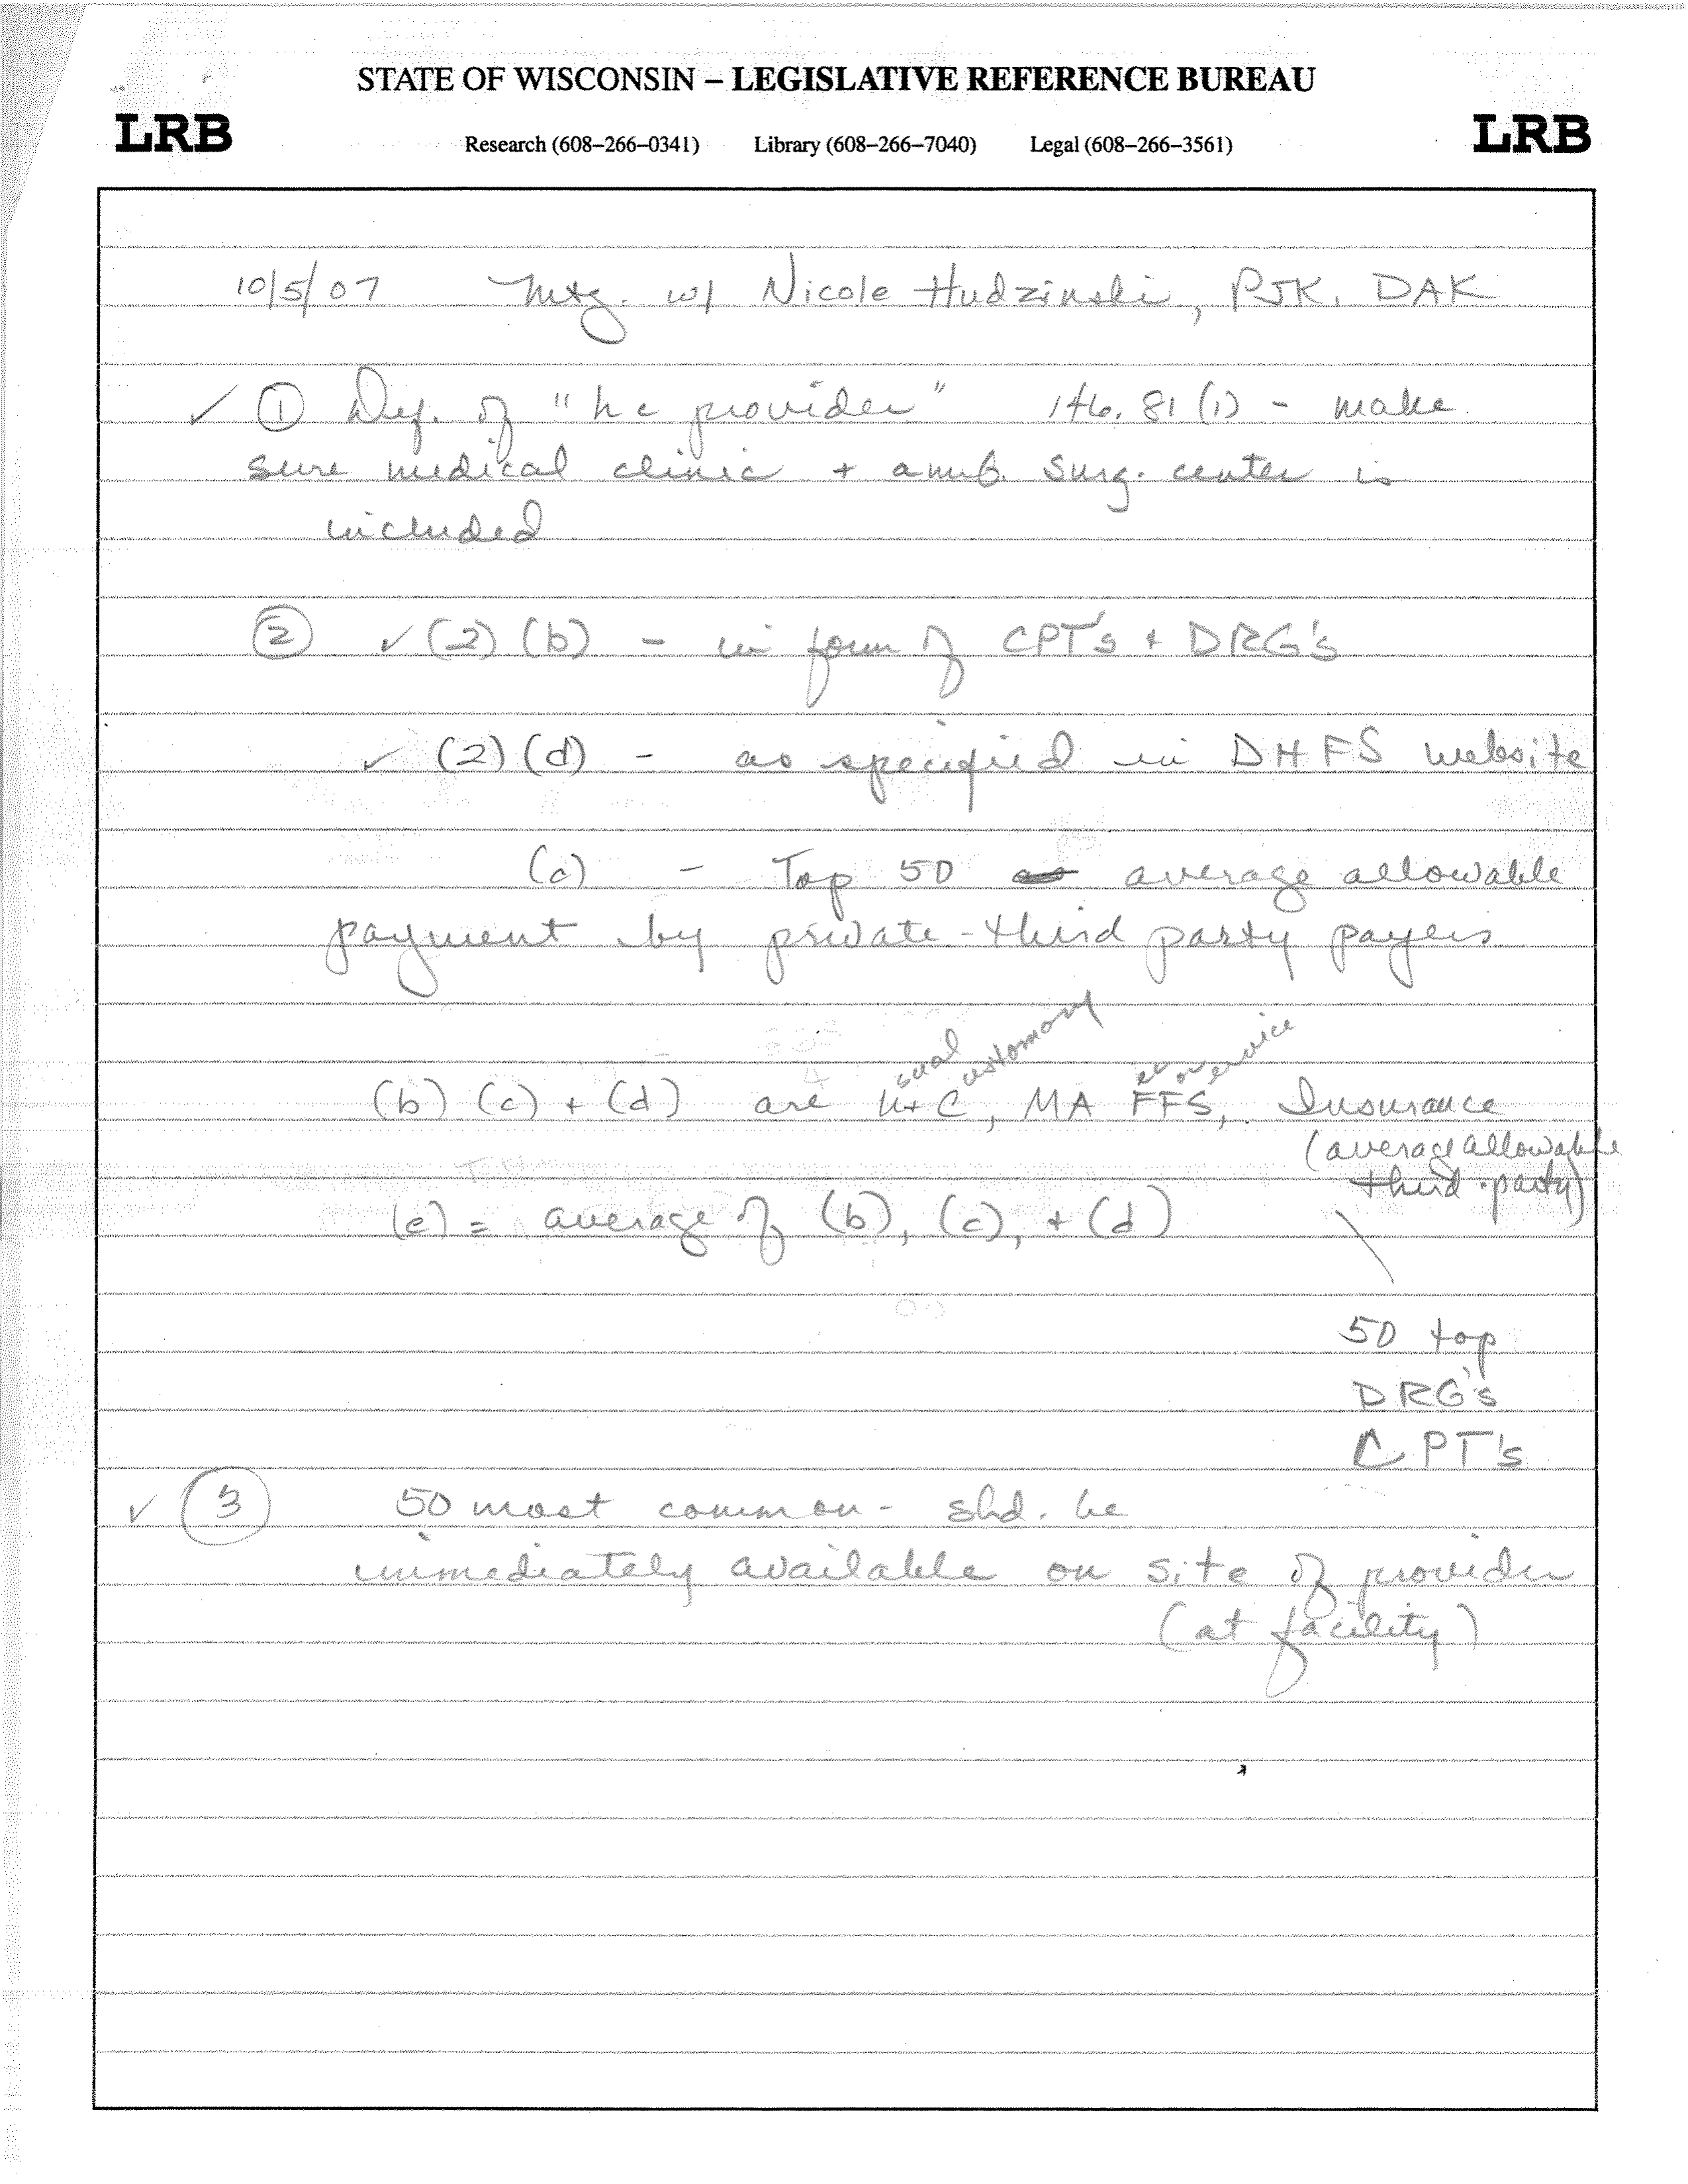 STATE OF WISCONSIN – LEGISLATIVE REFERENCE BUREAU
LRB
Research (608–266–0341) Library (608–266–7040) Legal (608–266–3561)
LRB
10/5/07 Mtg. w/ Nicole Hudzinski, PJK, DAK
✓ ① Def. of "hc provider" 146.81(1) - make
sure medical clinic + amb. surg. center is
included
② ✓ (2)(b) - in form of CPT's + DRG's
✓ (2)(d) - as specified in DHFS website
(c) - Top 50 average allowable
payment by private-third party payers
sual ustomary ee or ervice
(b) (c) + (d) are U+C, MA FFS, Insurance
(average allowable
third party)
(e) = average of (b), (c), + (d)
50 top
DRG's
CPT's
✓ ③ 50 most common - shd. be
immediately available on site of provider
(at facility)